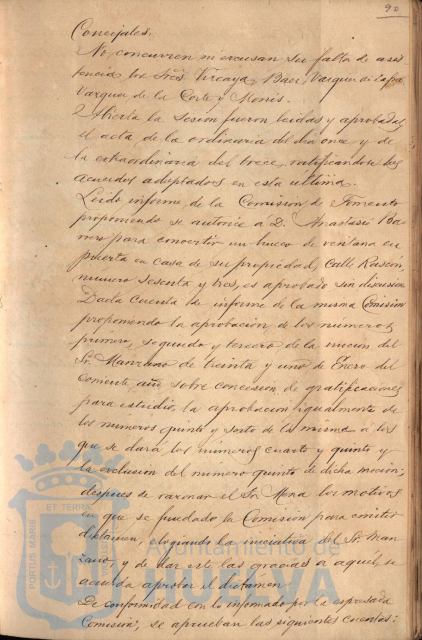 90
Concejales.
No concurren ni excusan su falta de asis-
tencia los Sres. Vizcaya, Baez, Vazquez de Zafra
Vazquez de la Corte y Monis.
Abierta la sesión fueron leidas y aprobadas
el acta de la ordinaria del dia once y de
la extraordinaria del trece, ratificándose los
acuerdos adoptados en esta última.
Leido informe de la Comisión de Fomento
proponiendo se autorice a D. Anastasio Ba-
rrero para convertir un hueco de ventana en
puerta en casa de su propiedad, Calle Rascón,
número sesenta y tres, es aprobado sin discusion
Dada Cuenta de informe de la misma Comisión
proponiendo la aprobación de los numeros
primero, segundo y tercero de la mocion del
Sr. Manzano de treinta y uno de Enero del
corriente año sobre concesion de gratificaciones
para estudio, la aprobacion igualmente de
los numeros quinto y sexto de la misma a los
que se dará los números cuarto y quinto y
la exclusion del número quinto de dicha mocion;
despues de razonar el Sr. Mena los motivos
en que se fundado la Comisión para emitir
dictamen, elogiando la iniciativa del Sr. Man-
zano, y de dar este las gracias a aquel, se
acuerda aprobar el dictamen.
De conformidad con lo informado por la expresada
Comisión, se aprueban las siguientes cuentas:
PORTUS MARIS
ET TERRAE
Ayuntamiento de
HUELVA